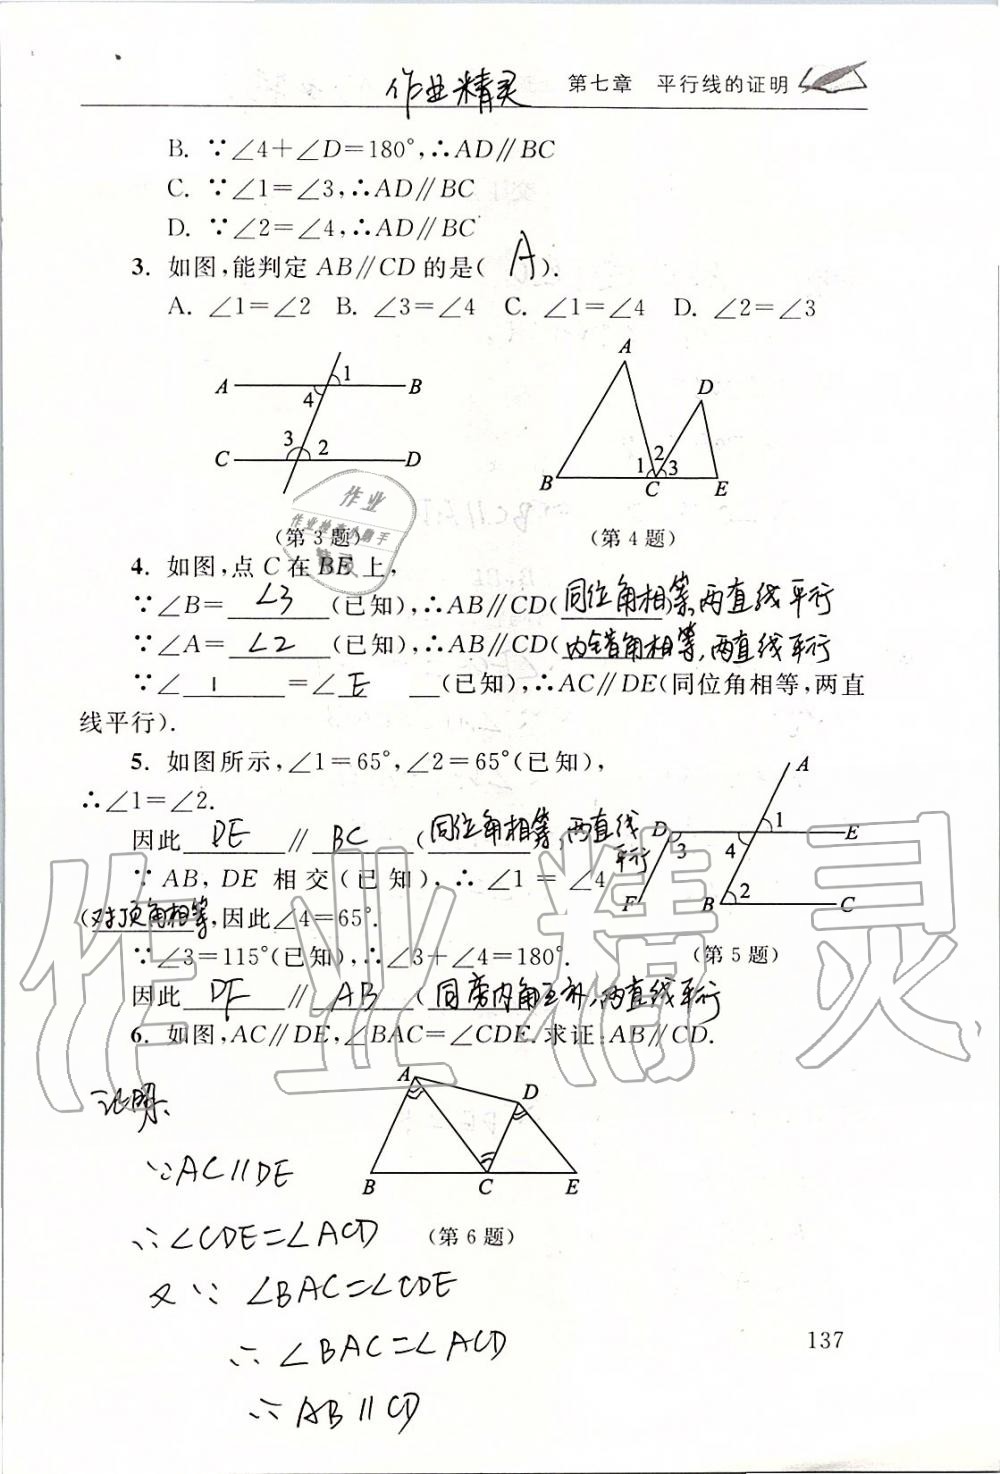 作业精灵 第七章 平行线的证明
B. ∵∠4+∠D=180°,∴AD∥BC
C. ∵∠1=∠3,∴AD∥BC
D. ∵∠2=∠4,∴AD∥BC
3. 如图,能判定 AB∥CD 的是( A ).
A. ∠1=∠2 B. ∠3=∠4 C. ∠1=∠4 D. ∠2=∠3
A B 1 4 3 2 C D
A D 2 1 3 B C E
(第3题) (第4题)
4. 如图,点 C 在 BE 上,
∵∠B= ∠3 (已知),∴AB∥CD(同位角相等,两直线平行
∵∠A= ∠2 (已知),∴AB∥CD(内错角相等,两直线平行
∵∠ 1 =∠ E (已知),∴AC∥DE(同位角相等,两直
线平行).
5. 如图所示,∠1=65°,∠2=65°(已知),
∴∠1=∠2.
因此 DE ∥ BC (同位角相等,两直线
平行
∵AB,DE 相交(已知),∴∠1=∠4
(对顶角相等,因此∠4=65°.
∵∠3=115°(已知),∴∠3+∠4=180°.
因此 DF ∥ AB (同旁内角互补,两直线平行
A D 1 E 3 4 F B 2 C
(第5题)
6. 如图,AC∥DE,∠BAC=∠CDE.求证:AB∥CD.
A D B C E
(第6题)
证明:
∵AC∥DE
∴∠CDE=∠ACD
又∵ ∠BAC=∠CDE
∴∠BAC=∠ACD
∴AB∥CD
137
作业
作业检查小助手
精灵
作业精灵